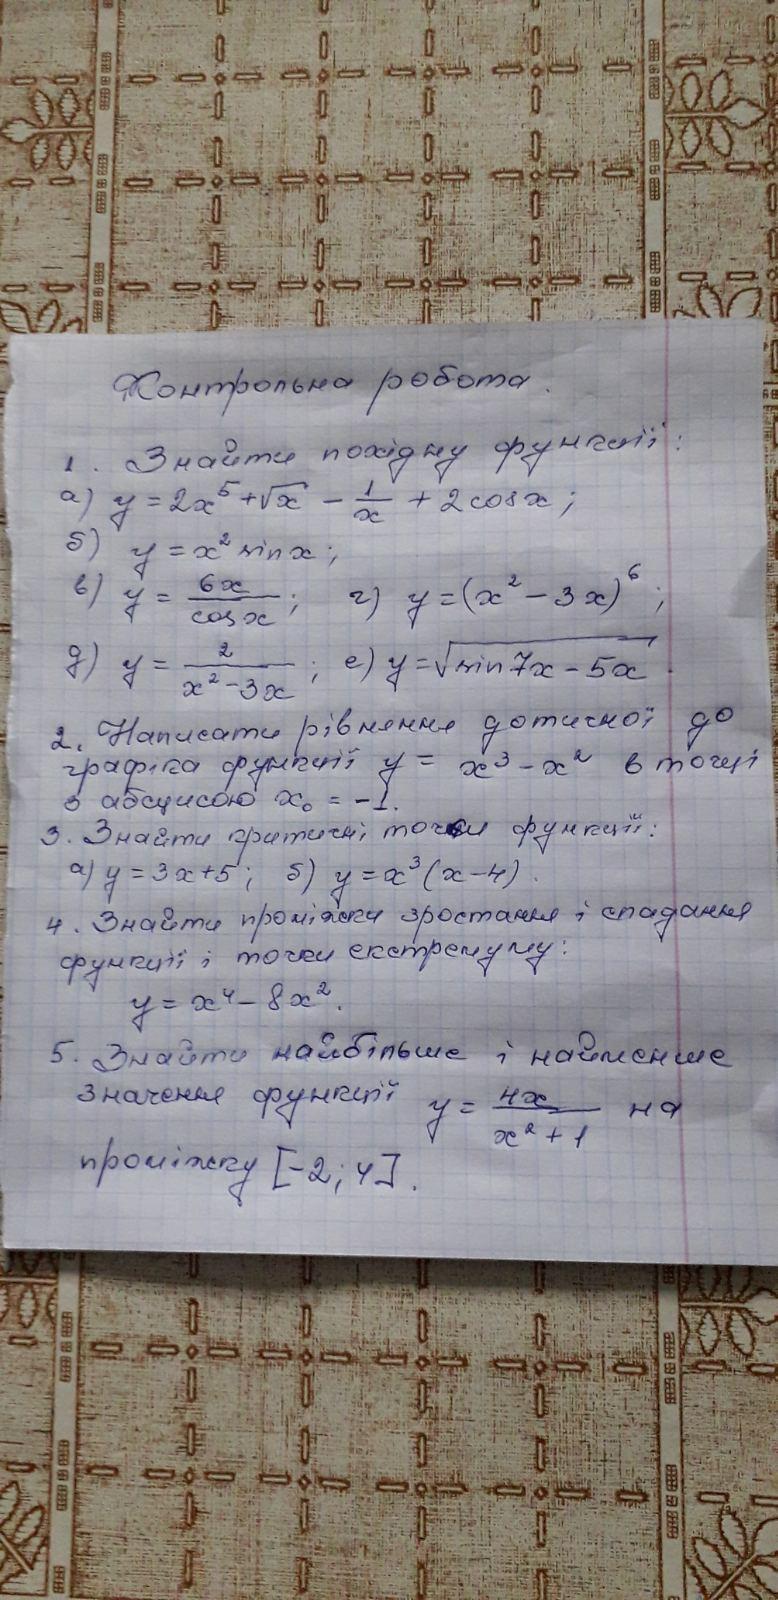 Контрольна робота.
1. Знайти похідну функції:
а) y = 2x⁵ + √x − 1/x + 2cosx;
б) y = x² sinx;
в) y = 6x/cosx; г) y = (x² − 3x)⁶;
д) y = 2/(x² − 3x); е) y = √(sin7x − 5x).
2. Написати рівняння дотичної до
графіка функції y = x³ − x² в точці
з абсцисою x₀ = −1.
3. Знайти критичні точки функції:
а) y = 3x + 5; б) y = x³(x − 4).
4. Знайти проміжки зростання і спадання
функції і точки екстремуму:
y = x⁴ − 8x².
5. Знайти найбільше і найменше
значення функції y = 4x/(x² + 1) на
проміжку [−2; 4].